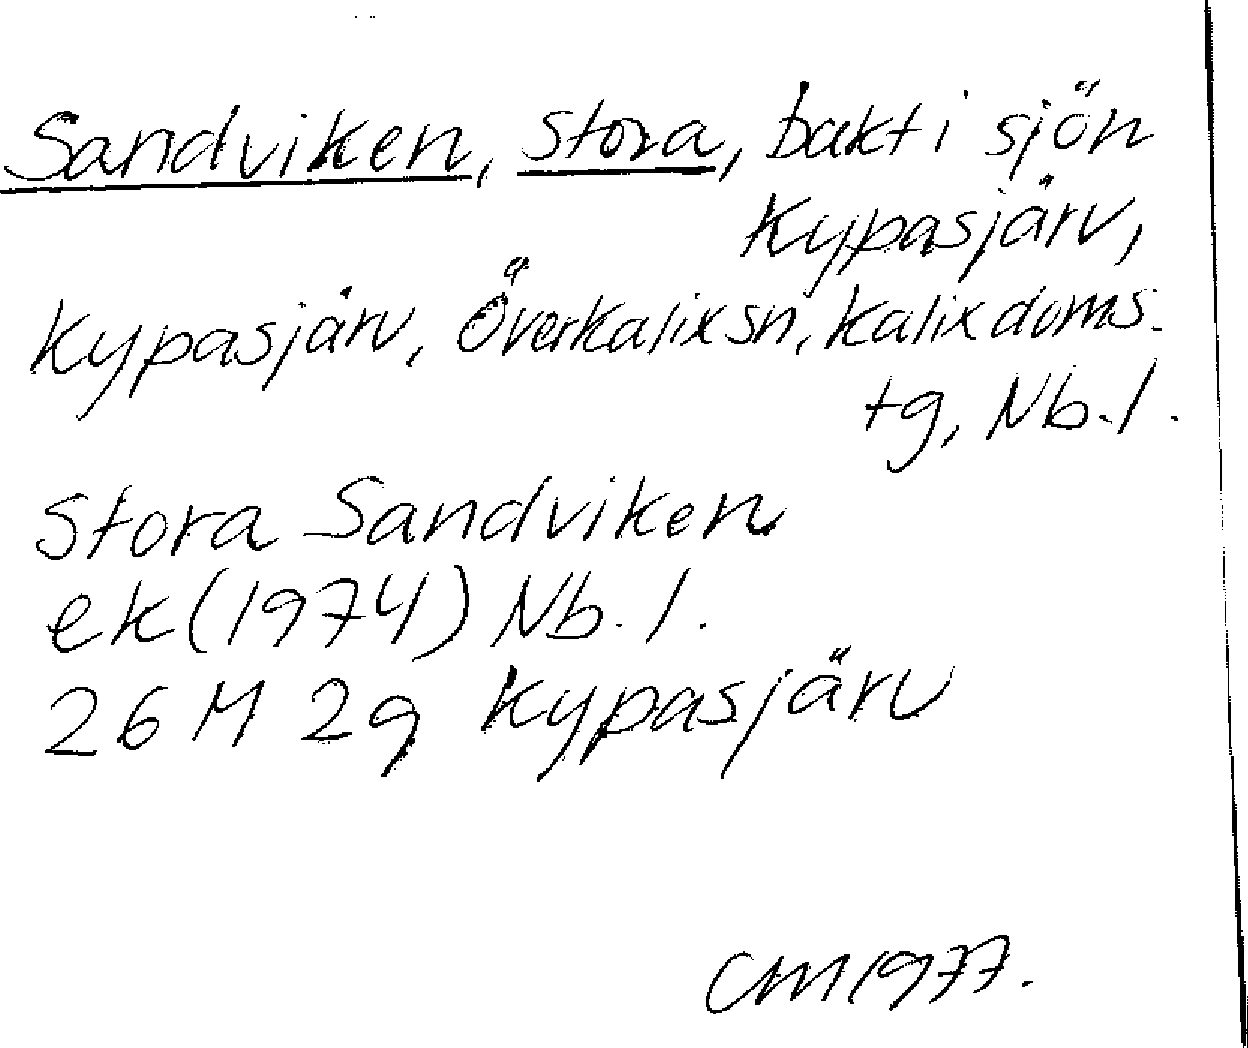 Sandviken, Stora, bakt i sjön
Kypasjärv,
Kypasjärv, Överkalix sn, Kalix doms.
tg, Nb. l.
Stora Sandviken
ek (1974) Nb. l.
26 M 2g Kypasjärv
CM 1977.